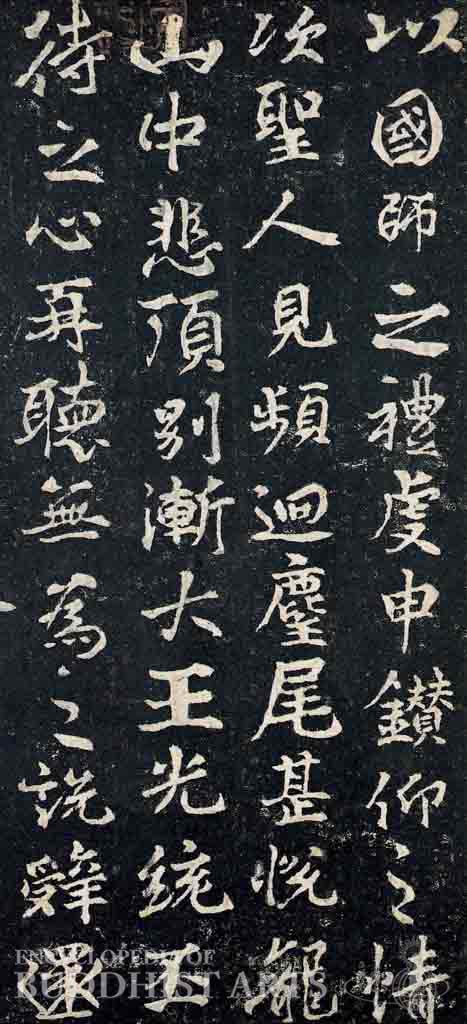 以國師之禮虔申鑽仰之情
次聖人見頻迴麈尾甚悅龍
山中悲頂別漸大王光統
待之心再聽無為之說辤還
ENCYCLOPEDIA OF
BUDDHIST ARTS